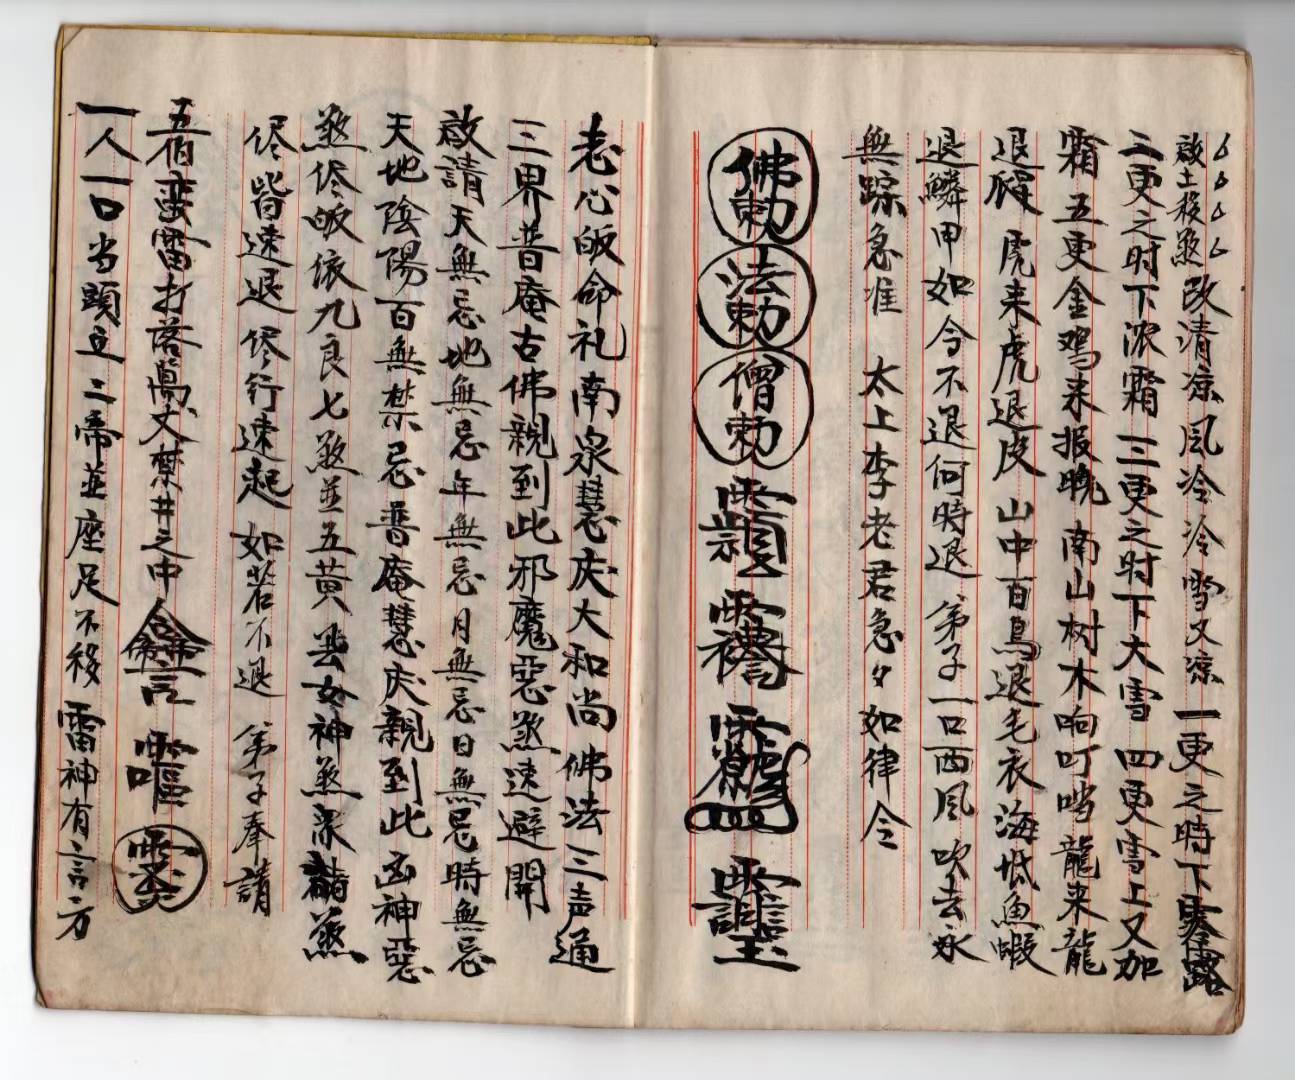 啟土移煞改清凉風冷冷雪又凉一更之時下寒露
二更之时下浓霜三更之时下大雪四更雪上又加
霜五更金鸡来报晚南山树木响叮噹龍来龍
退 虎来虎退皮山中百鳥退毛衣海底魚蝦
退鱗甲如今不退何時退弟子一口西風吹去永
無踪急准太上李老君急夕如律令
佛勅法勅僧勅
老心皈命礼南泉慧庆大和尚佛法三声通
三界普庵古佛親到此邪魔惡煞速避開
啟請天無忌地無忌年無忌月無忌日無忌時無忌
天地陰陽百無禁忌普庵慧庆親到此凶神惡
煞侭皈依九良七煞並五黃 女神煞眾 煞
侭皆速退侭行速起如若不退弟子奉請
五佰蛮雷打落萬丈禁井之中
一人一口当頭立二帝並座足不移雷神有言方